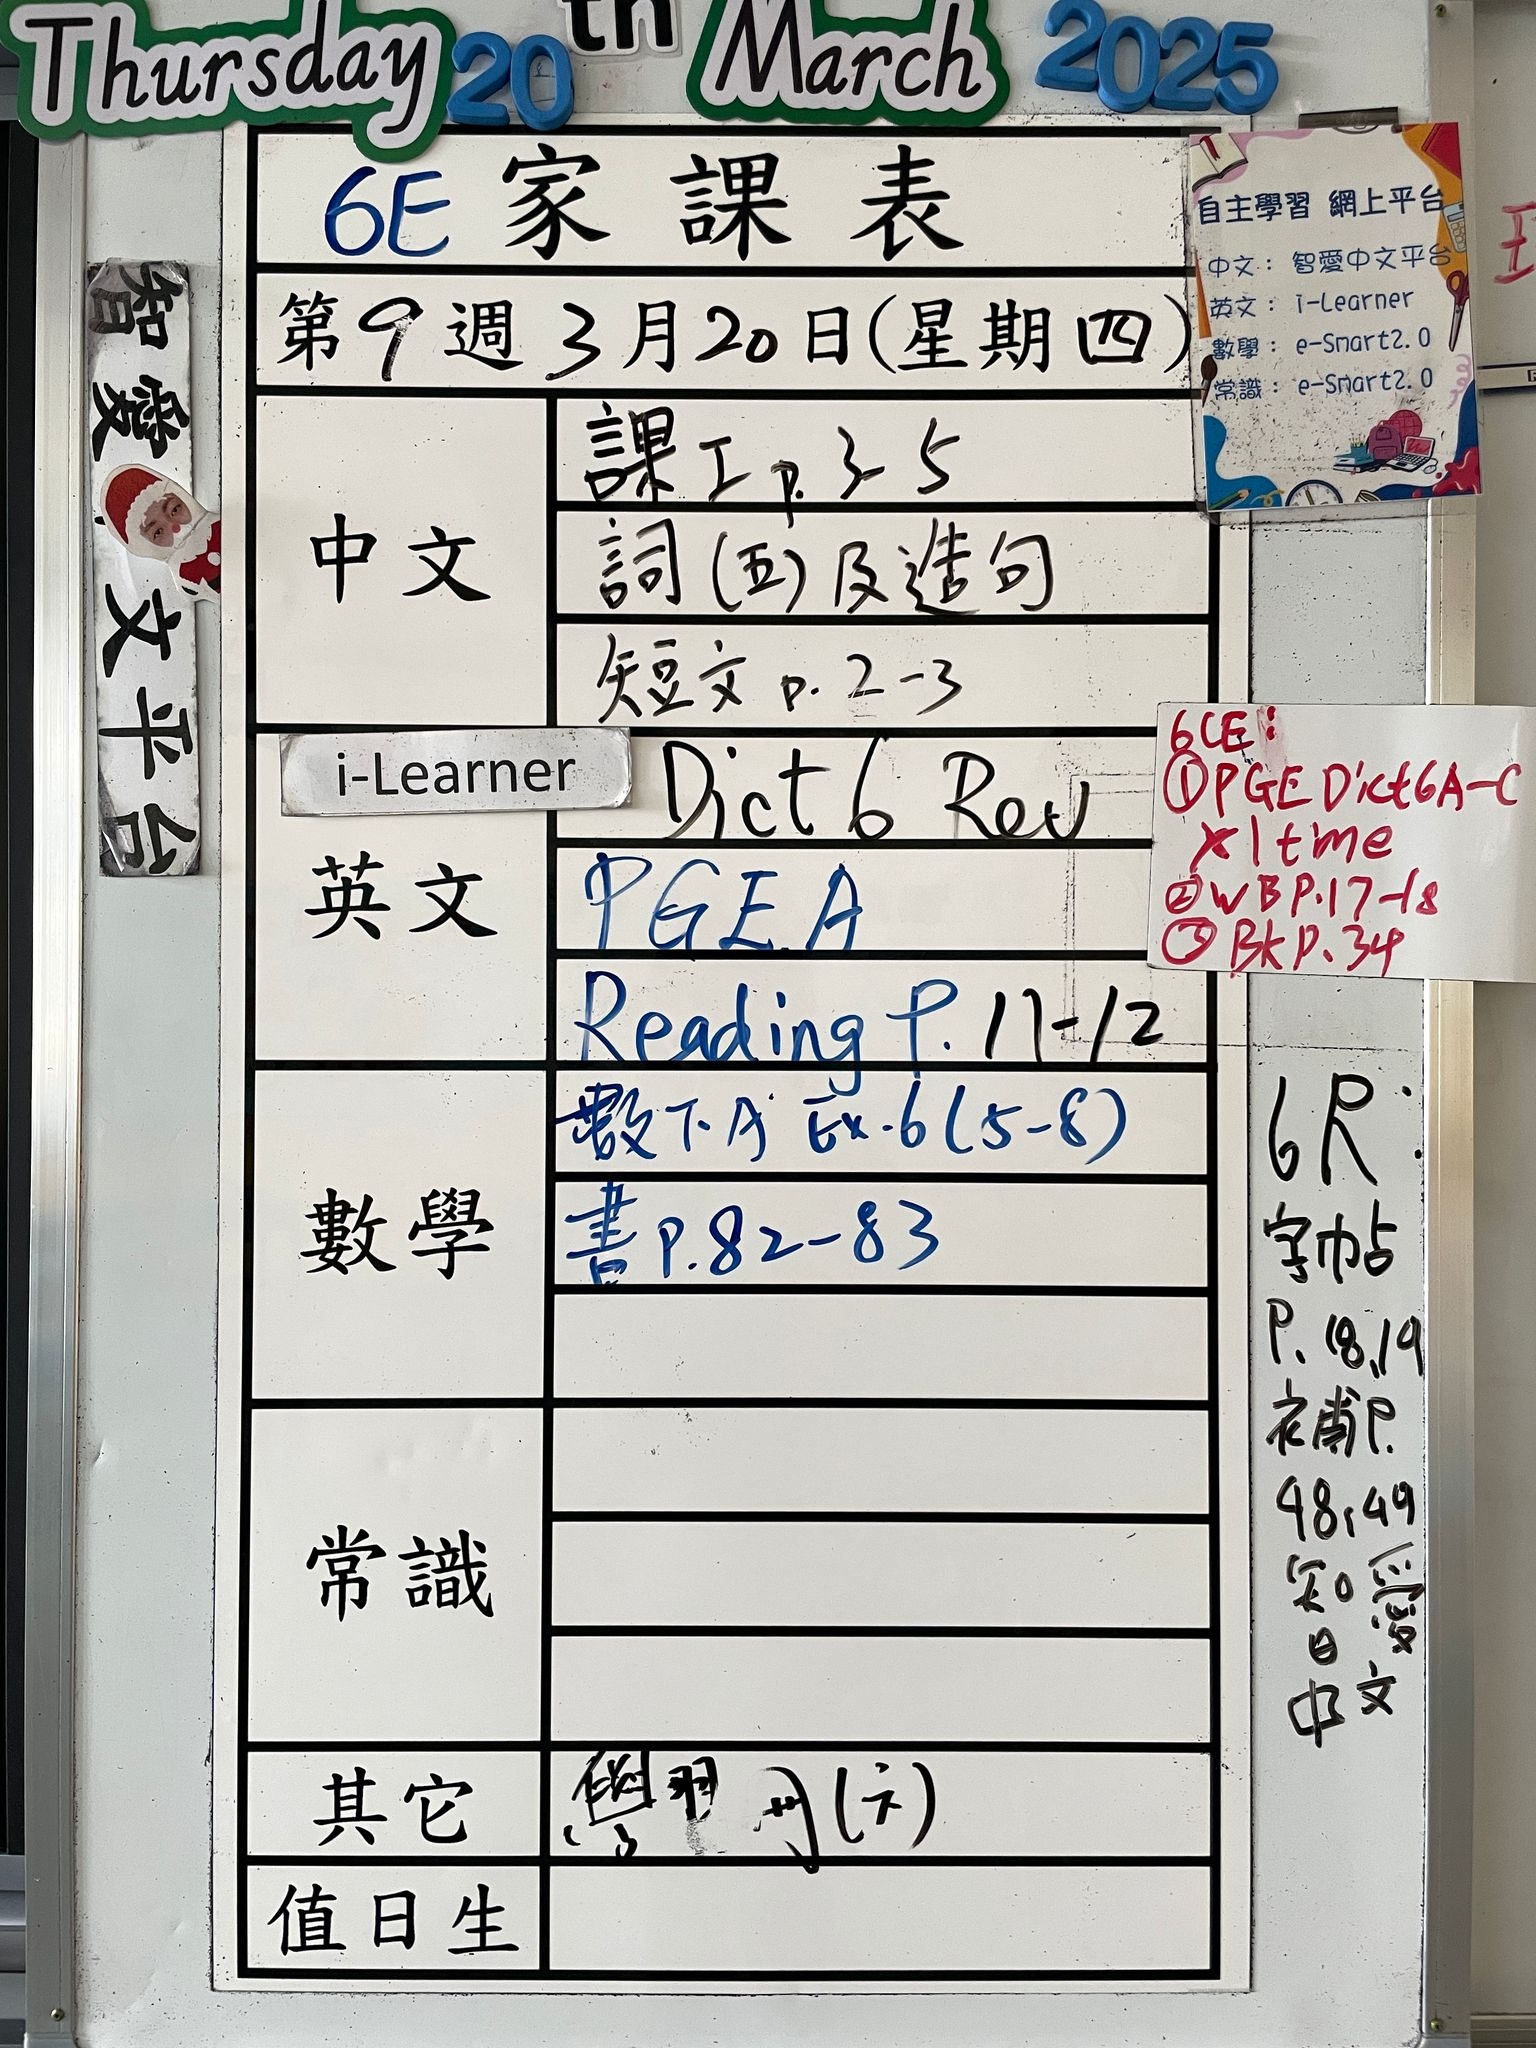 Thursday 20th March 2025
6E 家課表
第9週3月20日(星期四)
中文
課工p.3-5
詞(五)及造句
短文p.2-3
英文
i-Learner
Dict 6 Rev
PGE.A
Reading P.11-12
數學
數下A Ex.6(5-8)
書P.82-83
常識
其它
學習冊(六)
值日生
智愛中文平台
自主學習 網上平台
中文: 智愛中文平台
英文: i-Learner
數學: e-Smart2.0
常識: e-Smart2.0
6CE:
①PGE Dict6A-C
x1time
②WBP.17-18
③BKP.34
6R:
字帖
P.18,19
補P.
48,49
智愛
中文